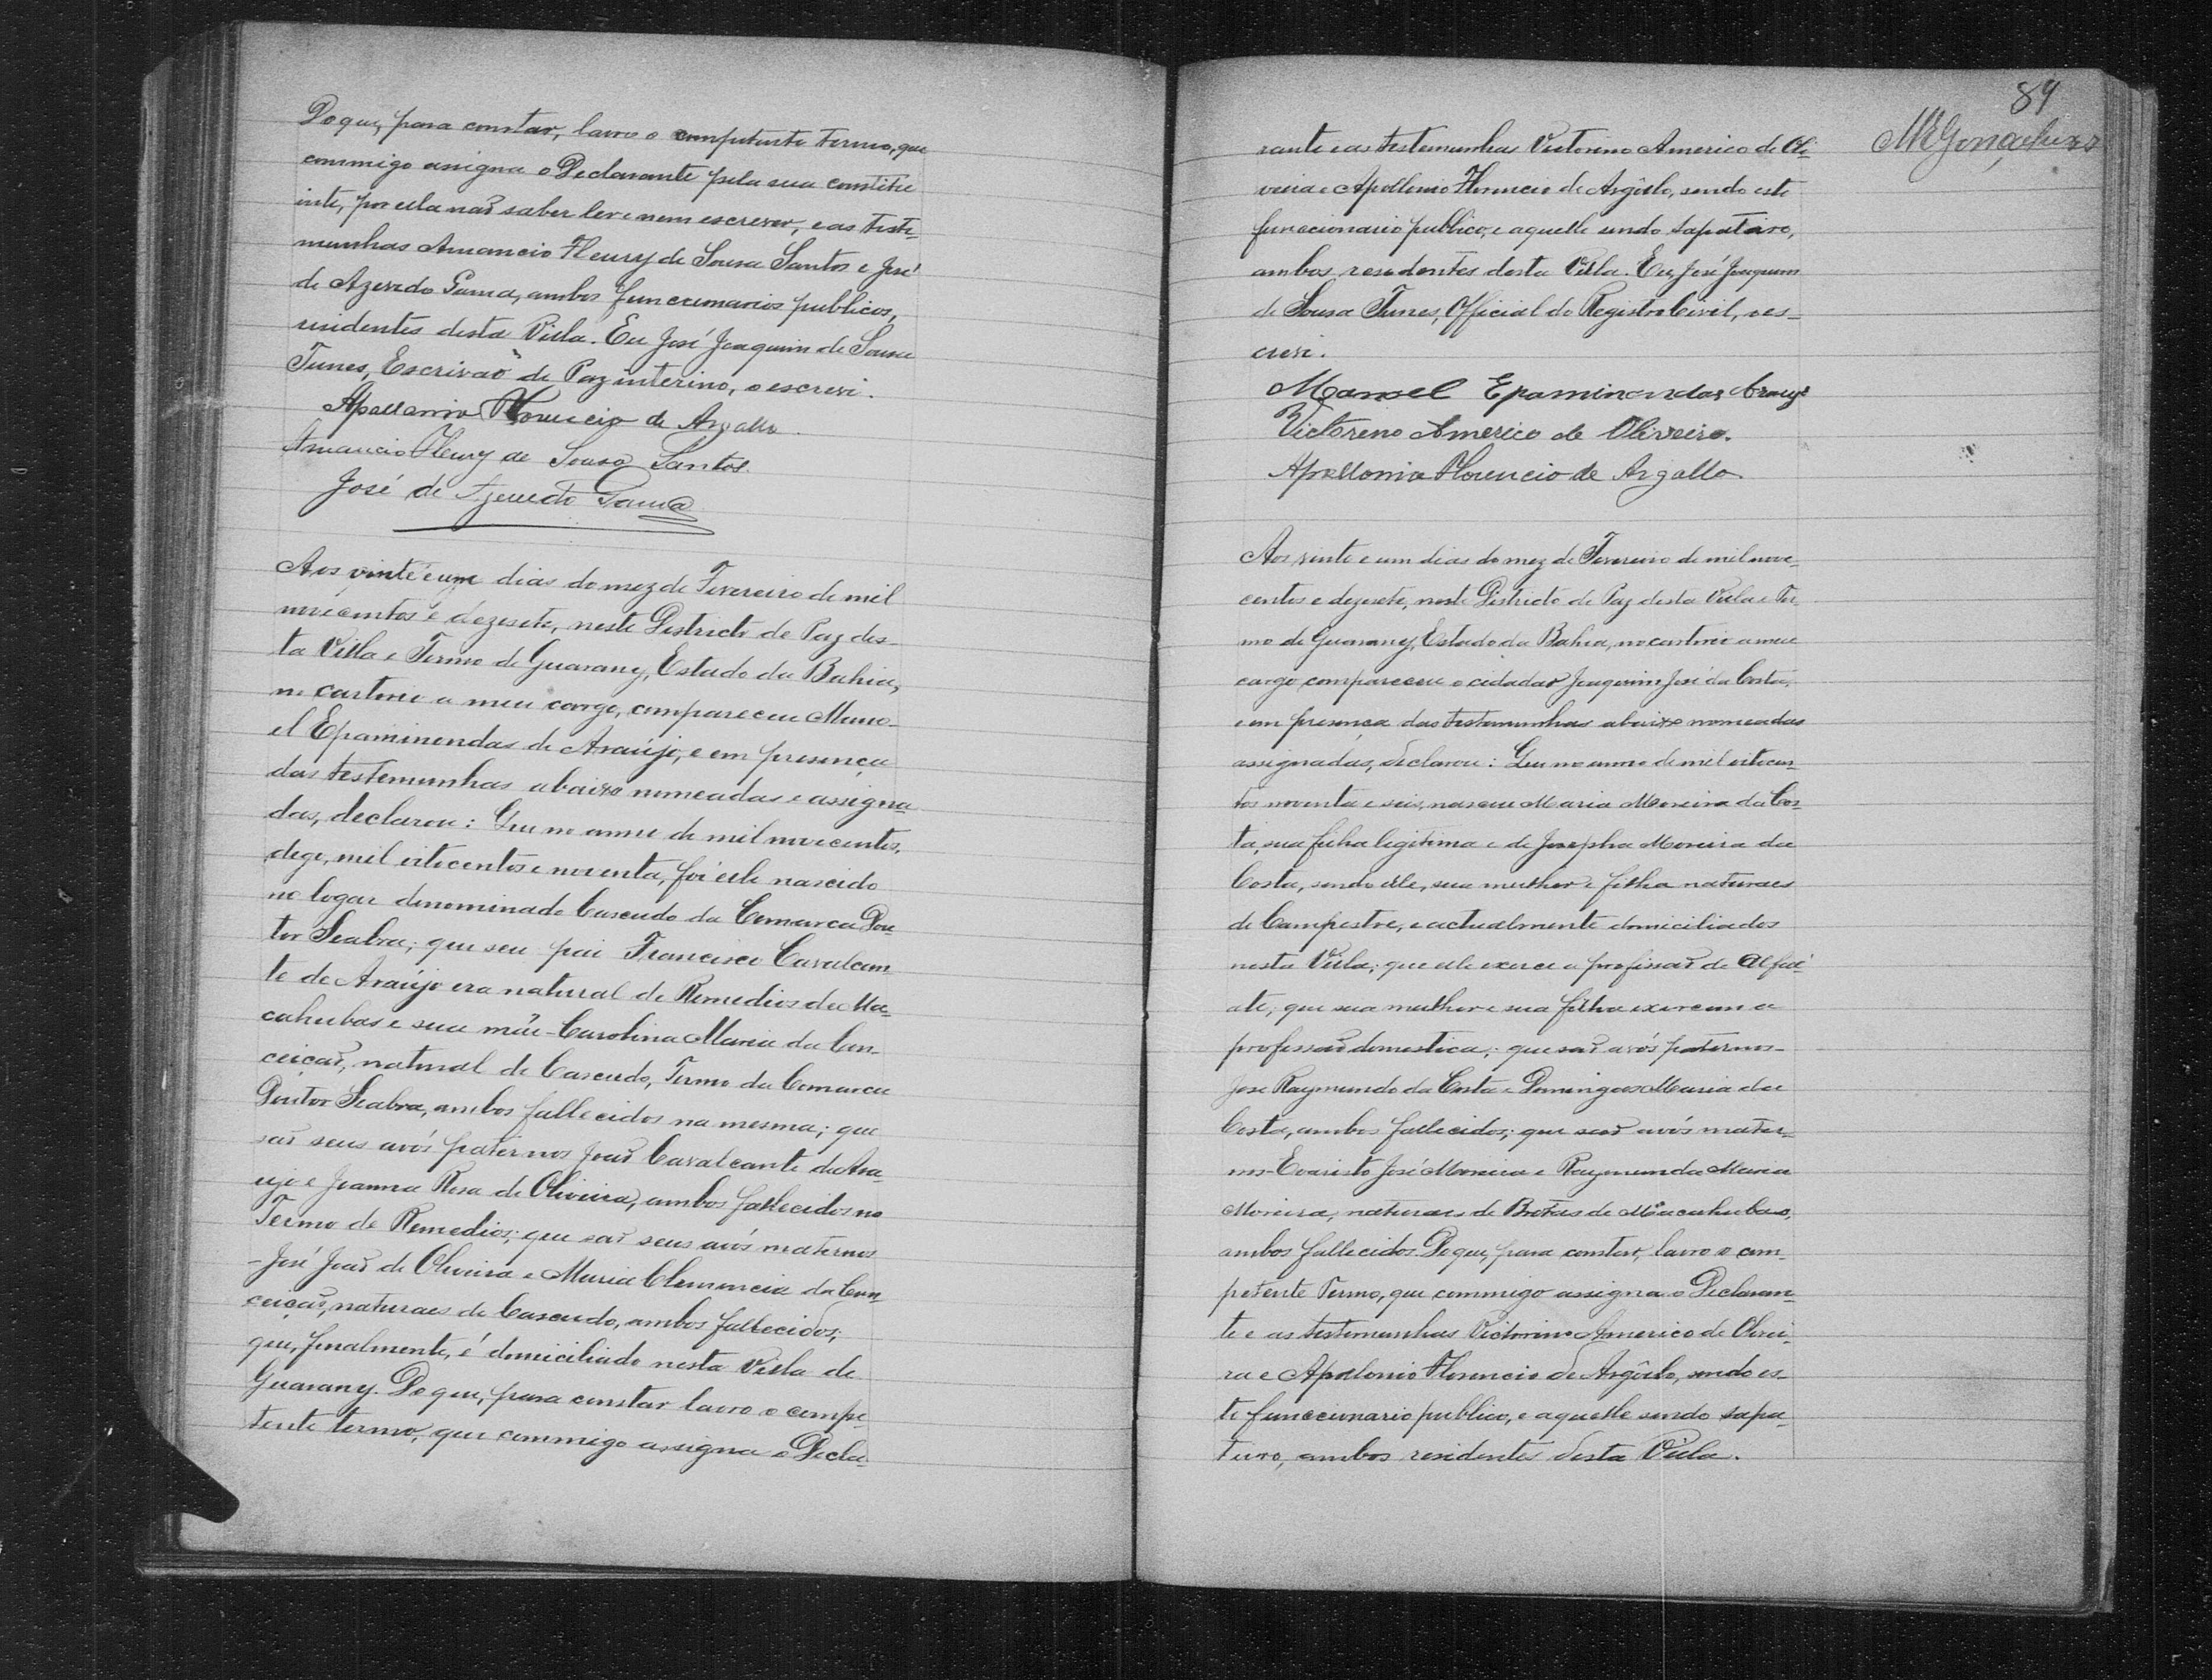 Do que, para constar, lavro o competente termo, que
commigo assigna o Declarante pela sua constitu
inte, por ella naõ saber ler e nem escrever, e as teste-
munhas Amancio Fleury de Sousa Santos e José
de Azevedo Gama, ambos funccionarios publicos,
residentes desta Villa. Eu José Joaquim de Sousa
Tunes, Escrivaõ de Paz interino, o escrevi.
Apollonio Florencio de Argollo
Amancio Fleury de Sousa Santos.
José de Azevedo Gama
Aos vinte e um dias do mez de Fevereiro de mil
novecentos e dezesete, neste Districto de Paz des-
ta Villa e Termo de Guarany, Estado da Bahia,
no cartorio a meu cargo, compareceu Mano-
el Epaminondas de Araújo, e em presença
das testemunhas abaixo nomeadas e assigna-
das, declarou: Que no anno de mil novecentos,
digo, mil oitocentos e noventa, foi elle nascido
no logar denominado Cascudo da Comarca Dou-
tor Seabra; que seu pai Francisco Cavalcan-
te de Araújo era natural de Remedios de Ma-
cahubas e sua mãe - Carolina Maria da Con-
ceiçaõ, natural de Cascudo, Termo da Comarca
Doutor Seabra, ambos fallecidos na mesma; que
saõ seus avós paternos Joaõ Cavalcante de Ara-
ujo e Joanna Rosa de Oliveira, ambos fallecidos no
Termo de Remedios; que saõ seus avós maternos
- José Joaõ de Oliveira e Maria Clemencia da Con-
ceiçaõ, naturaes de Cascudo, ambos fallecidos;
que, finalmente, é domiciliado nesta Villa de
Guarany. Do que, para constar lavro o compe-
tente termo, que commigo assigna o Decla-
84
MR Gonçalves
rante e as testemunhas Victorino Americo de Oli-
veira e Apollonio Florencio de Argôllo, sendo este
funccionario publico, e aquelle sendo sapateiro,
ambos residentes desta Villa. Eu, José Joaquim
de Sousa Tunes, Official do Registro Civil, o es-
crevi.
Manoel Epaminondas Araujo
Victoreno Americo de Oliveira.
Apollonio Florencio de Argollo
Aos vinte e um dias do mez de Fevereiro de mil nove-
centos e dezesete, neste Districto de Paz desta Villa e Ter-
mo de Guarany, Estado da Bahia, no cartorio a meu
cargo compareceu o cidadaõ Joaquim José da Costa,
e em presença das testemunhas abaixo nomeadas
assignadas, declarou: Que no anno de mil oitocen-
tos noventa e seis, nasceu Maria Moreira da Cos-
ta, sua filha legitima e de Josepha Moreira da
Costa, sendo elle, sua mulher e filha naturaes
de Campestre, e actualmente domiciliados
nesta Villa; que elle exerce a profissaõ de alfai-
ate; que sua mulher e sua filha exercem a
profissaõ domestica; que saõ avós paternos -
José Raymundo da Costa e Domingas Maria da
Costa, ambos fallecidos; que saõ avós mater-
nos - Evaristo José Moreira e Raymunda Maria
Moreira, naturaes de Brotas de Macahubas,
ambos fallecidos. Do que, para constar, lavro o com-
petente Termo, que commigo assigna o Declaran-
te e as testemunhas Victorino Americo de Olivei-
ra e Apollonio Florencio de Argôllo, sendo es-
te funccionario publico, e aquelle sendo sapa-
teiro, ambos residentes desta Villa.